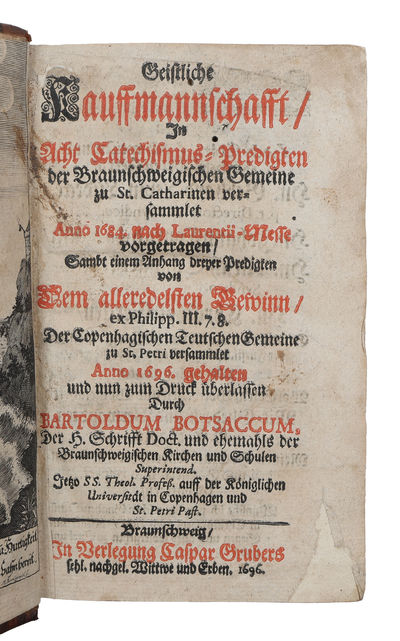 Geistliche
Kauffmannschafft /
In
Acht Catechismus-Predigten
der Braunschweigischen Gemeine
zu St. Catharinen ver-
sammlet
Anno 1684. nach Laurentii-Messe
vorgetragen /
Sambt einem Anhang dreyer Predigten
von
Dem alleredelsten Gewinn /
ex Philipp. III. 7. 8.
Der Copenhagischen Teutschen Gemeine
zu St. Petri versammlet
Anno 1696. gehalten
und nun zum Druck überlassen
Durch
BARTOLDUM BOTSACCUM,
Der H. Schrifft Doct. und ehemahls der
Braunschweigischen Kirchen und Schulen
Superintend.
Jetzo SS. Theol. Profeß. auff der Königlichen
Universität in Copenhagen und
St. Petri Past.
Braunschweig /
In Verlegung Caspar Grubers
sehl. nachgel. Wittwe und Erben. 1696.